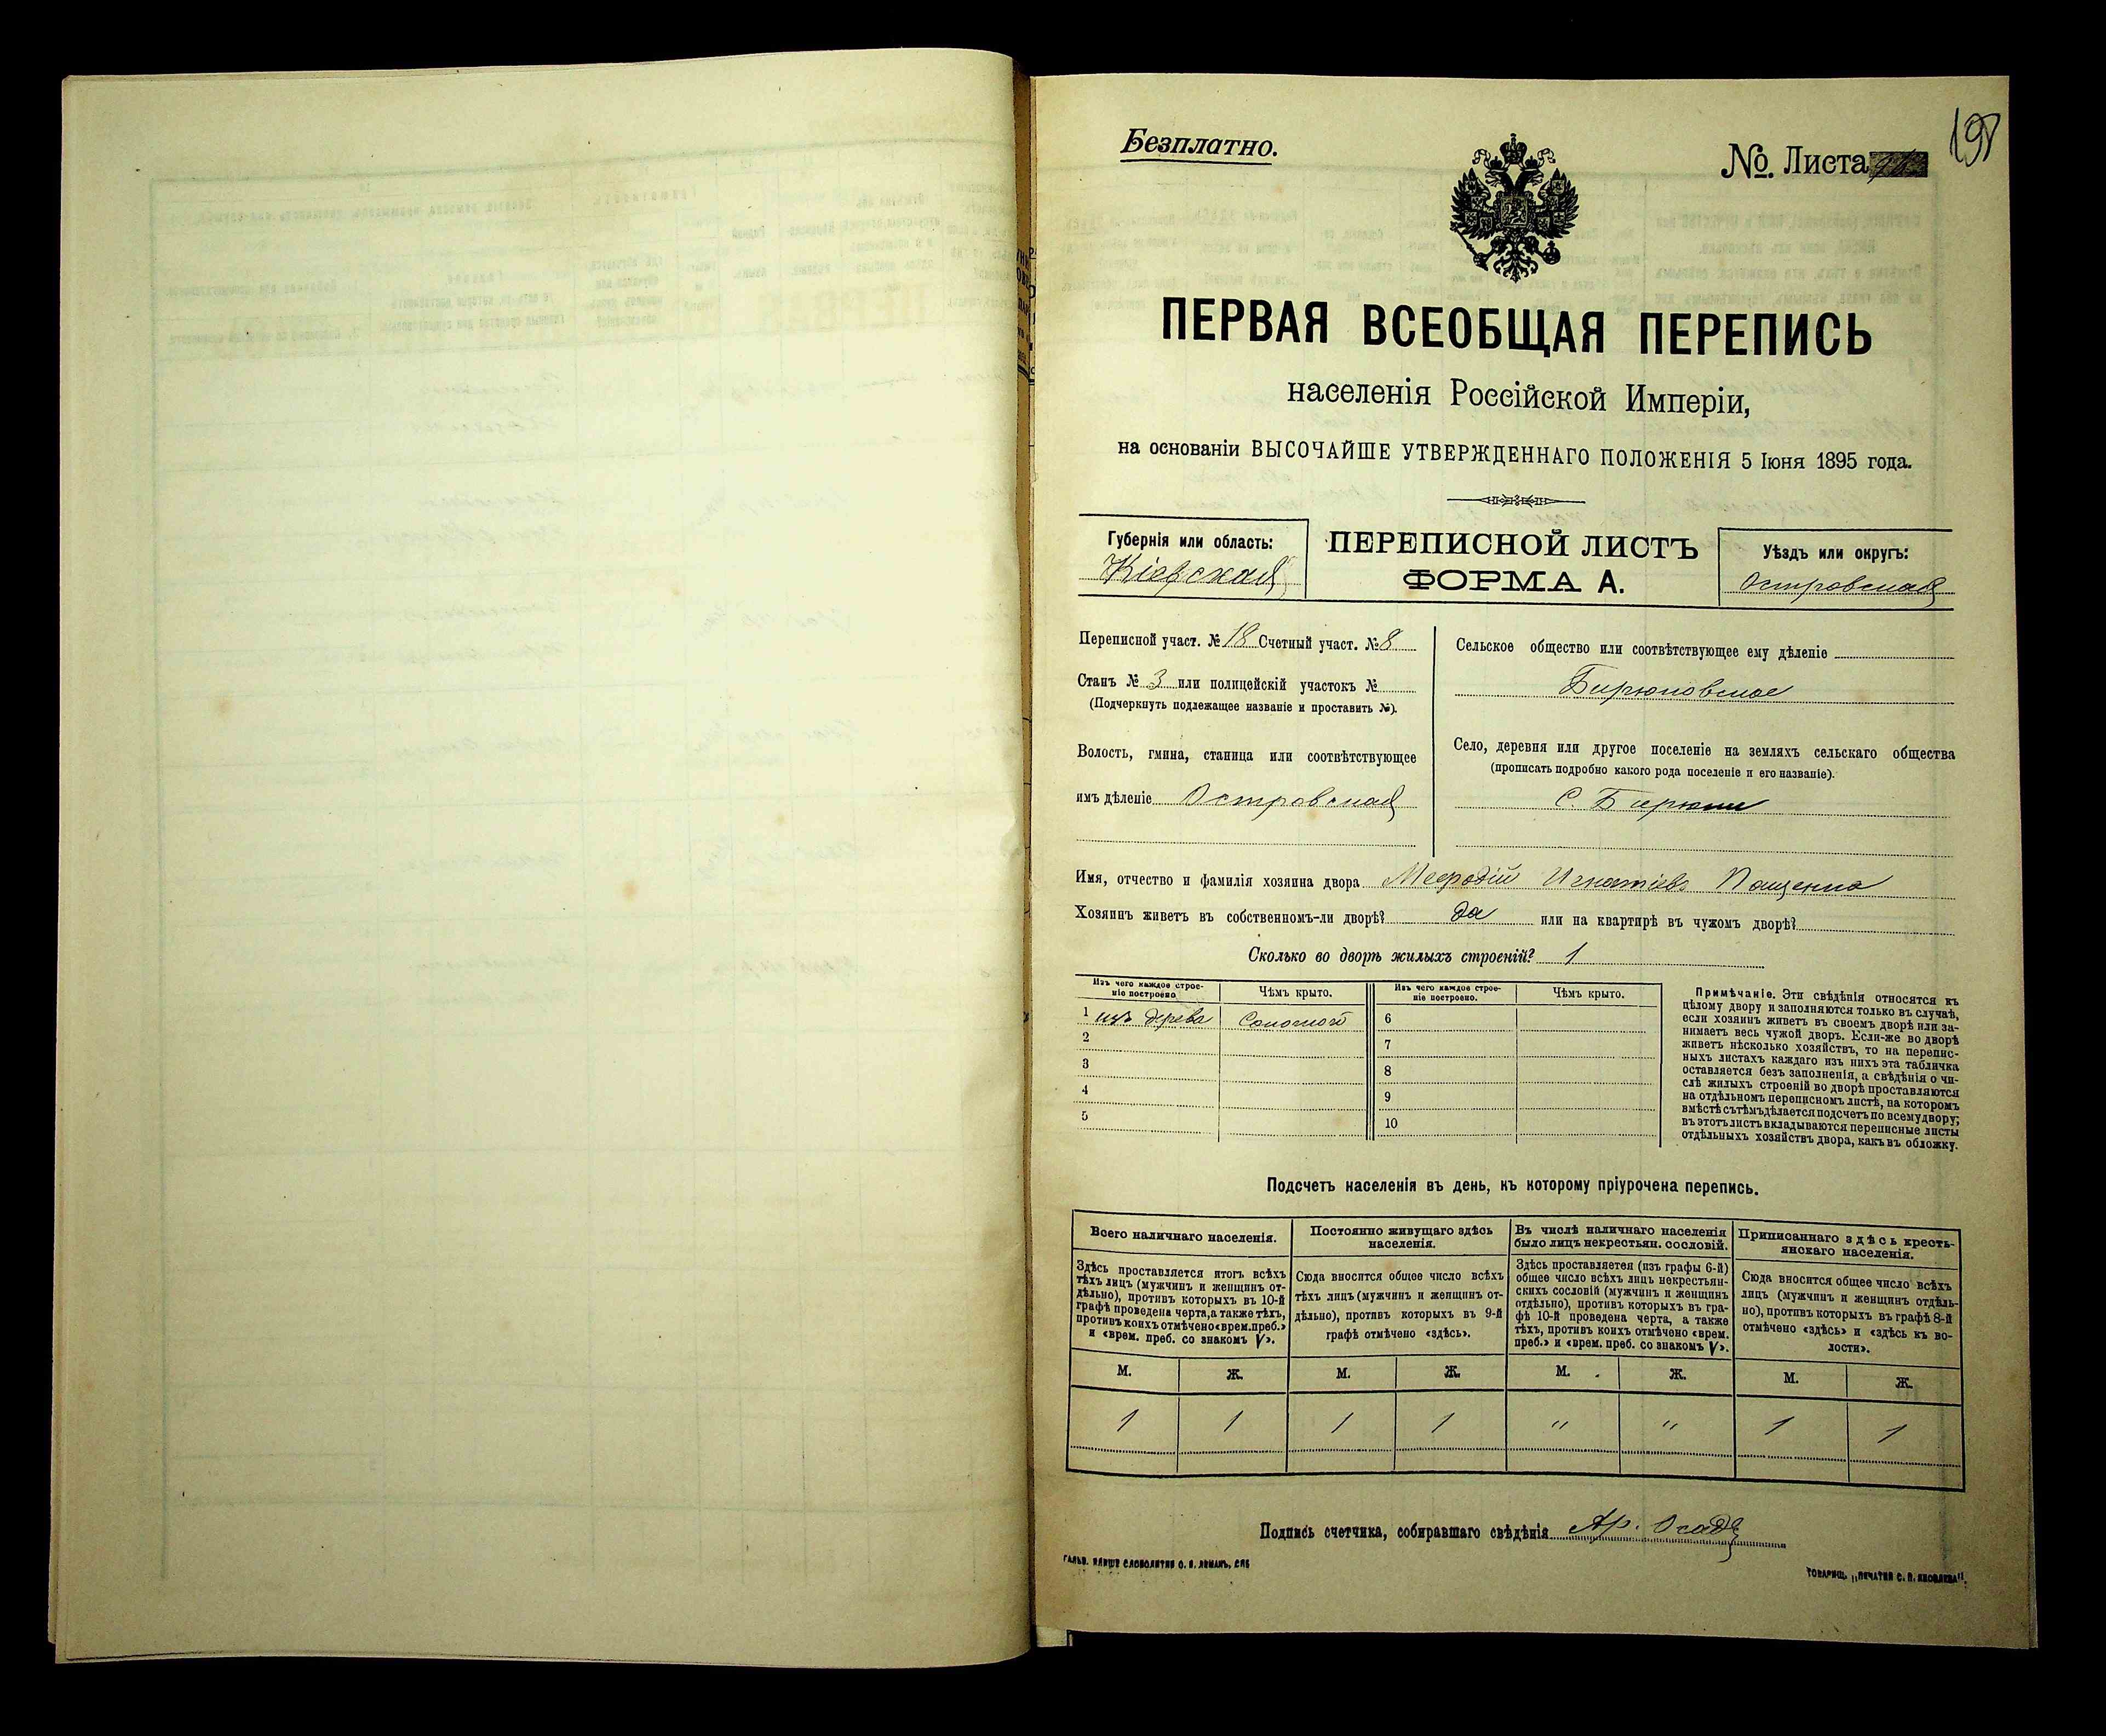 197
Безплатно.
№. Листа
ПЕРВАЯ ВСЕОБЩАЯ ПЕРЕПИСЬ
населенія Россійской Имперіи,
на основаніи ВЫСОЧАЙШЕ УТВЕРЖДЕННАГО ПОЛОЖЕНІЯ 5 Іюня 1895 года.
Губернія или область:
Кіевская
ПЕРЕПИСНОЙ ЛИСТЪ
ФОРМА А.
Уѣздъ или округъ:
Островская
Переписной участ. № 18 Счетный участ. № 8
Станъ № 3 или полицейскій участокъ №
(Подчеркнуть подлежащее названіе и проставить №).
Волость, гмина, станица или соотвѣтствующее
имъ дѣленіе Островская
Сельское общество или соотвѣтствующее ему дѣленіе
Бирюковское
Село, деревня или другое поселеніе на земляхъ сельскаго общества
(прописать подробно какого рода поселеніе и его названіе).
С. Бирюки
Имя, отчество и фамилія хозяина двора Мефодій Игнатіевъ Пащенко
Хозяинъ живетъ въ собственномъ-ли дворѣ? да или на квартирѣ въ чужомъ дворѣ?
Сколько во дворѣ жилыхъ строеній? 1
Изъ чего каждое строе-
ніе построено.
Чѣмъ крыто.
Изъ чего каждое строе-
ніе построено.
Чѣмъ крыто.
1 изъ дерева Соломой 6
2 7
3 8
4 9
5 10
Примѣчаніе. Эти свѣдѣнія относятся къ
цѣлому двору и заполняются только въ случаѣ,
если хозяинъ живетъ въ своемъ дворѣ или за-
нимаетъ весь чужой дворъ. Если-же во дворѣ
живетъ нѣсколько хозяйствъ, то на перепис-
ныхъ листахъ каждаго изъ нихъ эта табличка
оставляется безъ заполненія, а свѣдѣнія о чи-
слѣ жилыхъ строеній во дворѣ проставляются
на отдѣльномъ переписномъ листѣ, на которомъ
вмѣстѣ съ тѣмъ дѣлается подсчетъ по всему двору;
въ этотъ листъ вкладываются переписные листы
отдѣльныхъ хозяйствъ двора, какъ въ обложку.
Подсчетъ населенія въ день, къ которому пріурочена перепись.
Всего наличнаго населенія.
Здѣсь проставляется итогъ всѣхъ
тѣхъ лицъ (мужчинъ и женщинъ от-
дѣльно), противъ которыхъ въ 10-й
графѣ проведена черта, а также тѣхъ,
противъ коихъ отмѣчено «врем. преб.»
и «врем. преб. со знакомъ V».
Постоянно живущаго здѣсь
населенія.
Сюда вносится общее число всѣхъ
тѣхъ лицъ (мужчинъ и женщинъ от-
дѣльно), противъ которыхъ въ 9-й
графѣ отмѣчено «здѣсь».
Въ числѣ наличнаго населенія
было лицъ некрестьян. сословій.
Здѣсь проставляется (изъ графы 6-й)
общее число всѣхъ лицъ некрестьян-
скихъ сословій (мужчинъ и женщинъ
отдѣльно), противъ которыхъ въ гра-
фѣ 10-й проведена черта, а также
тѣхъ, противъ коихъ отмѣчено «врем.
преб.» и «врем. преб. со знакомъ V».
Приписаннаго здѣсь кресть-
янскаго населенія.
Сюда вносится общее число всѣхъ
лицъ (мужчинъ и женщинъ отдѣль-
но), противъ которыхъ въ графѣ 8-й
отмѣчено «здѣсь» и «здѣсь къ во-
лости».
М. Ж. М. Ж. М. Ж. М. Ж.
1 1 1 1 " " 1 1
Подпись счетчика, собиравшаго свѣдѣнія Ар. Осад
ГАЛЬВ. КЛИШЕ СЛОВОЛИТНИ О. И. ЛЕМАНЪ, СПБ
ТОВАРИЩ. „ПЕЧАТНЯ С. П. ЯКОВЛЕВА".